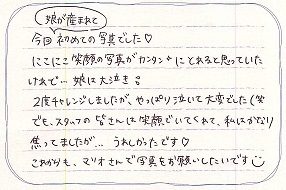 娘が産まれて
今回初めての写真でした♡
にこにこ笑顔の写真がカンタンにとれると思っていた
けれど… 娘は大泣き!
2度チャレンジしましたが、やっぱり泣いて大変でした(笑
でも、スタッフの皆さんは笑顔でいてくれて、私はかなり
焦ってましたが… うれしかったです♡
これからも、マリオさんで写真をお願いしたいです